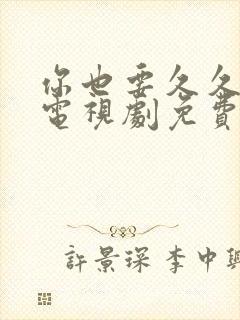 你也要久久
電視劇免費
許景琛 李中興